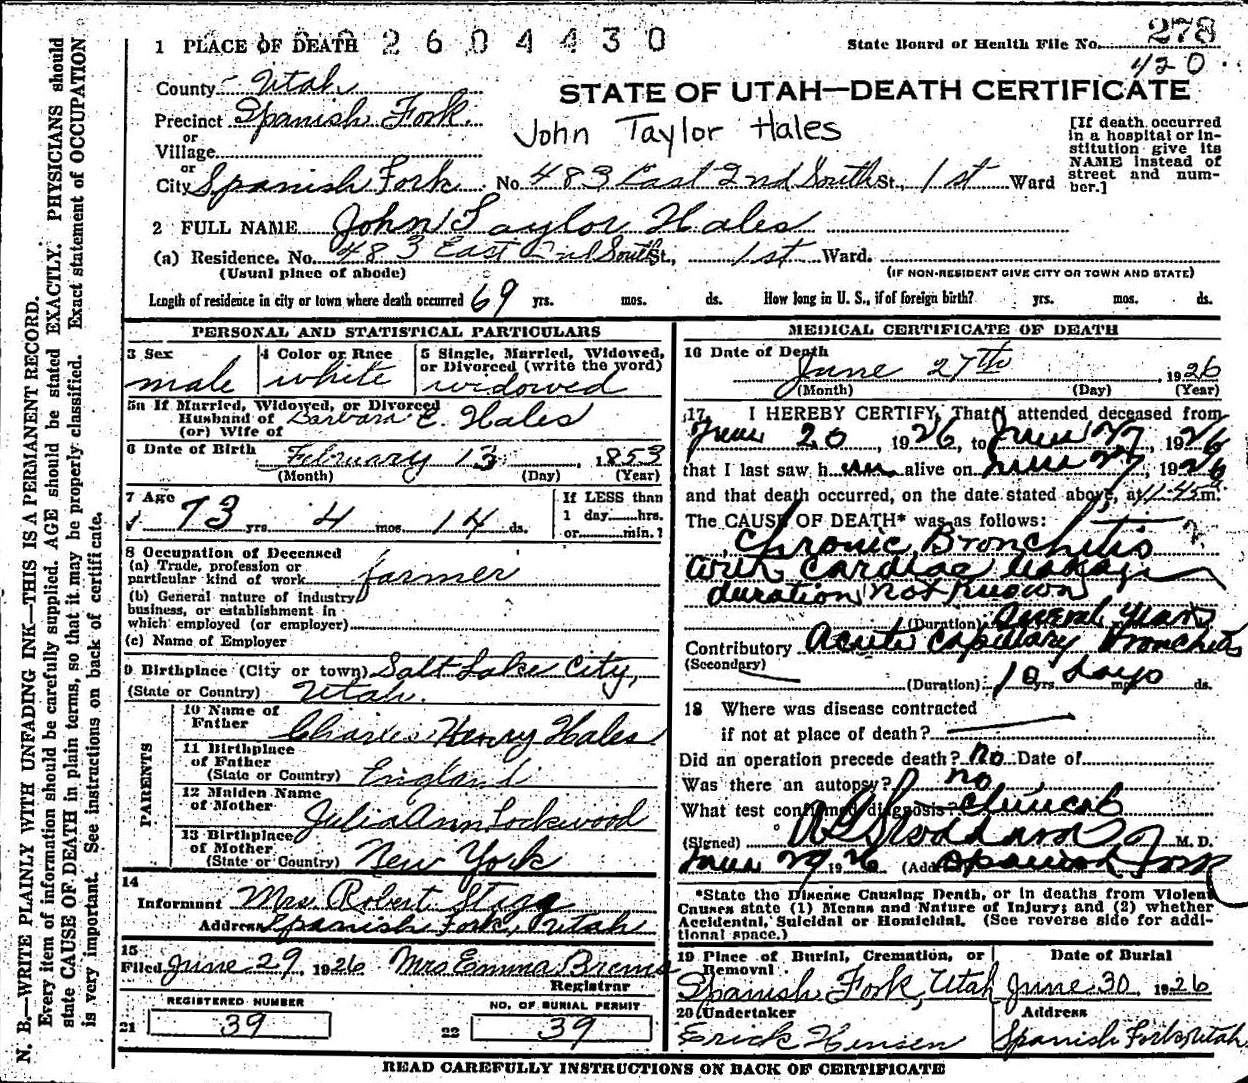 1 PLACE OF DEATH 2604430
State Board of Health File No. 278
420
County Utah
STATE OF UTAH—DEATH CERTIFICATE
Precinct Spanish Fork
John Taylor Hales
or
Village
or
City Spanish Fork No. 483 East 2nd South St., 1st Ward
[If death occurred
in a hospital or in-
stitution give its
NAME instead of
street and num-
ber.]
2 FULL NAME John Taylor Hales
(a) Residence. No. 483 East 2nd South St., 1st Ward.
(Usual place of abode) (IF NON-RESIDENT GIVE CITY OR TOWN AND STATE)
Length of residence in city or town where death occurred 69 yrs. mos. ds. How long in U. S., if of foreign birth? yrs. mos. ds.
PERSONAL AND STATISTICAL PARTICULARS
3 Sex
male
4 Color or Race
white
5 Single, Married, Widowed,
or Divorced (write the word)
widowed
5a If Married, Widowed, or Divorced
Husband of Barbara E. Hales
(or) Wife of
6 Date of Birth February 13, 1853
(Month) (Day) (Year)
7 Age
73 yrs. 4 mos. 14 ds.
If LESS than
1 day......hrs.
or......min.?
8 Occupation of Deceased
(a) Trade, profession or
particular kind of work farmer
(b) General nature of industry
business, or establishment in
which employed (or employer)
(c) Name of Employer
9 Birthplace (City or town) Salt Lake City,
(State or Country) Utah.
PARENTS
10 Name of
Father Charles Henry Hales
11 Birthplace
of Father
(State or Country) England
12 Maiden Name
of Mother Julia Ann Lockwood
13 Birthplace
of Mother
(State or Country) New York
14
Informant Mrs. Robert
Address Spanish Fork, Utah
15
Filed June 29 1926 Mrs Emma Brems
Registrar
REGISTERED NUMBER
21 39
NO. OF BURIAL PERMIT
22 39
MEDICAL CERTIFICATE OF DEATH
16 Date of Death
June 27th, 1926
(Month) (Day) (Year)
17 I HEREBY CERTIFY, That I attended deceased from
June 20, 1926, to June 27, 1926
that I last saw him alive on June 27, 1926
and that death occurred, on the date stated above, at 11.45 m.
The CAUSE OF DEATH* was as follows:
Chronic Bronchitis
with cardiac leakage
duration not known
(Duration) several years
Contributory Acute capillary Bronchitis
(Secondary)
(Duration) 10 yrs. days mos. ds.
18 Where was disease contracted
if not at place of death?
Did an operation precede death? no Date of
Was there an autopsy? no
What test confirmed diagnosis? clinical
(Signed) Stoddard M. D.
June 29 1926 (Address) Spanish Fork
*State the Disease Causing Death, or in deaths from Violent
Causes state (1) Means and Nature of Injury; and (2) whether
Accidental, Suicidal or Homicidal. (See reverse side for addi-
tional space.)
19 Place of Burial, Cremation, or
Removal
Spanish Fork, Utah
Date of Burial
June 30 1926
20 Undertaker
Erick Hansen
Address
Spanish Fork, Utah
READ CAREFULLY INSTRUCTIONS ON BACK OF CERTIFICATE
N. B.—WRITE PLAINLY WITH UNFADING INK—THIS IS A PERMANENT RECORD.
Every item of information should be carefully supplied. AGE should be stated EXACTLY. PHYSICIANS should
state CAUSE OF DEATH in plain terms, so that it may be properly classified. Exact statement of OCCUPATION
is very important. See instructions on back of certificate.